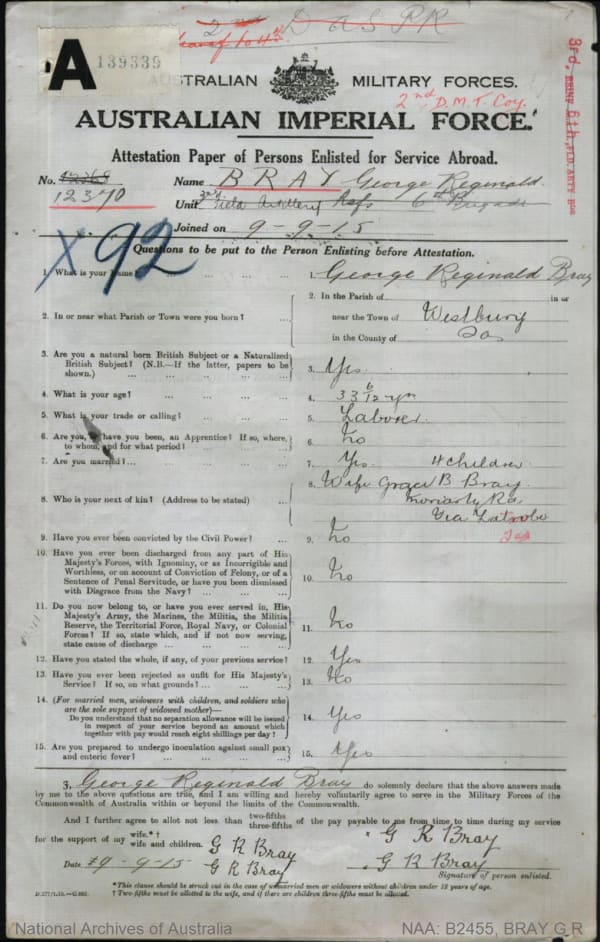 2nd D A S P K
A 139339
AUSTRALIAN MILITARY FORCES.
2nd D.M.T. Coy.
3rd, 6th, FLD. ARTY BGE
AUSTRALIAN IMPERIAL FORCE.
Attestation Paper of Persons Enlisted for Service Abroad.
No. 12369 Name BRAY George Reginald
12370
Unit Field Artillery Refs 6th Brigade
Joined on 9-9-15
X92
Questions to be put to the Person Enlisting before Attestation.
1. What is your Name? ... ... ... 1. George Reginald Bray
2. In or near what Parish or Town were you born? ... 2. In the Parish of in or
near the Town of Westbury
in the County of Tas
3. Are you a natural born British Subject or a Naturalized
British Subject? (N.B.—If the latter, papers to be
shown.) ... ... ... ... 3. Yes.
4. What is your age? ... ... ... 4. 33 6/12 yrs
5. What is your trade or calling? ... ... 5. Laborer.
6. Are you, or have you been, an Apprentice? If so, where,
to whom, and for what period? ... ... 6. No
7. Are you married? ... ... ... ... 7. Yes. 4 children
8. Who is your next of kin? (Address to be stated) ... 8. Wife Grace B Bray.
Moriarty Rd
Via Latrobe
Tas
9. Have you ever been convicted by the Civil Power? ... 9. No
10. Have you ever been discharged from any part of His
Majesty's Forces, with Ignominy, or as Incorrigible and
Worthless, or on account of Conviction of Felony, or of a
Sentence of Penal Servitude, or have you been dismissed
with Disgrace from the Navy? ... ... 10. No
11. Do you now belong to, or have you ever served in, His
Majesty's Army, the Marines, the Militia, the Militia
Reserve, the Territorial Force, Royal Navy, or Colonial
Forces? If so, state which, and if not now serving,
state cause of discharge ... ... ... 11. No
12. Have you stated the whole, if any, of your previous service? 12. Yes
13. Have you ever been rejected as unfit for His Majesty's
Service? If so, on what grounds? ... ... 13. No
14. (For married men, widowers with children, and soldiers who
are the sole support of widowed mother)—
Do you understand that no separation allowance will be issued
in respect of your service beyond an amount which
together with pay would reach eight shillings per day? 14. Yes
15. Are you prepared to undergo inoculation against small pox
and enteric fever? ... ... ... 15. Yes
I, George Reginald Bray do solemnly declare that the above answers made
by me to the above questions are true, and I am willing and hereby voluntarily agree to serve in the Military Forces of the
Commonwealth of Australia within or beyond the limits of the Commonwealth.
And I further agree to allot not less than two-fifths three-fifths of the pay payable to me from time to time during my service
for the support of my wife.*† wife and children. G R Bray G R Bray
Date 9-9-15 G R Bray G R Bray
Signature of person enlisted.
*This clause should be struck out in the case of unmarried men or widowers without children under 18 years of age.
† Two-fifths must be allotted to the wife, and if there are children three-fifths must be allotted.
National Archives of Australia NAA: B2455, BRAY G R